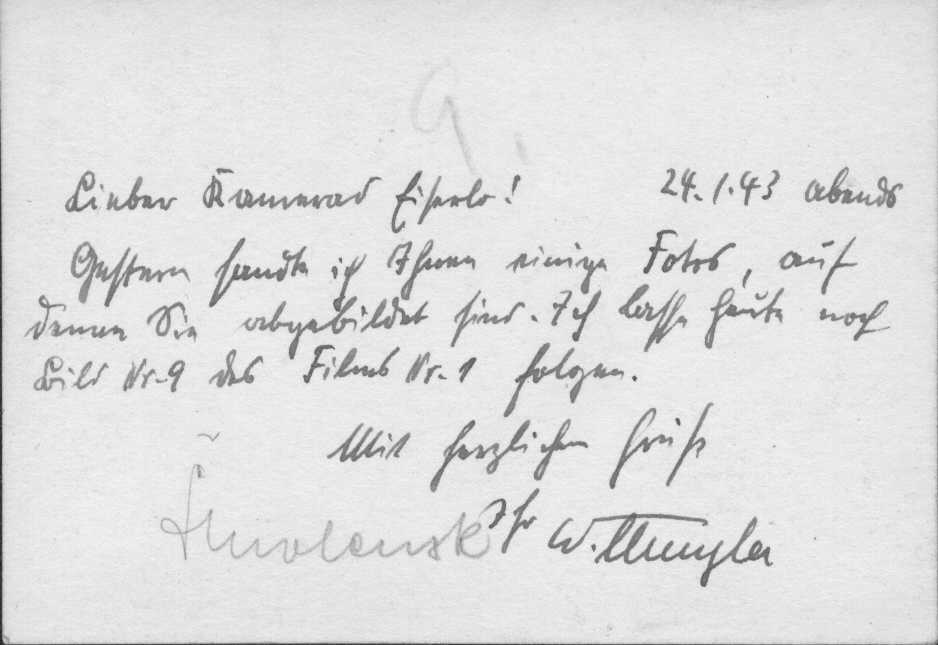 9.
Lieber Kamerad Eiserlo! 24.1.43 abends
Gestern sandte ich Ihnen einige Fotos, auf
denen Sie abgebildet sind. Ich lasse heute noch
Bild Nr. 9 des Films Nr. 1 folgen.
Mit herzlichem Gruß
Ihr W.
Smolensk